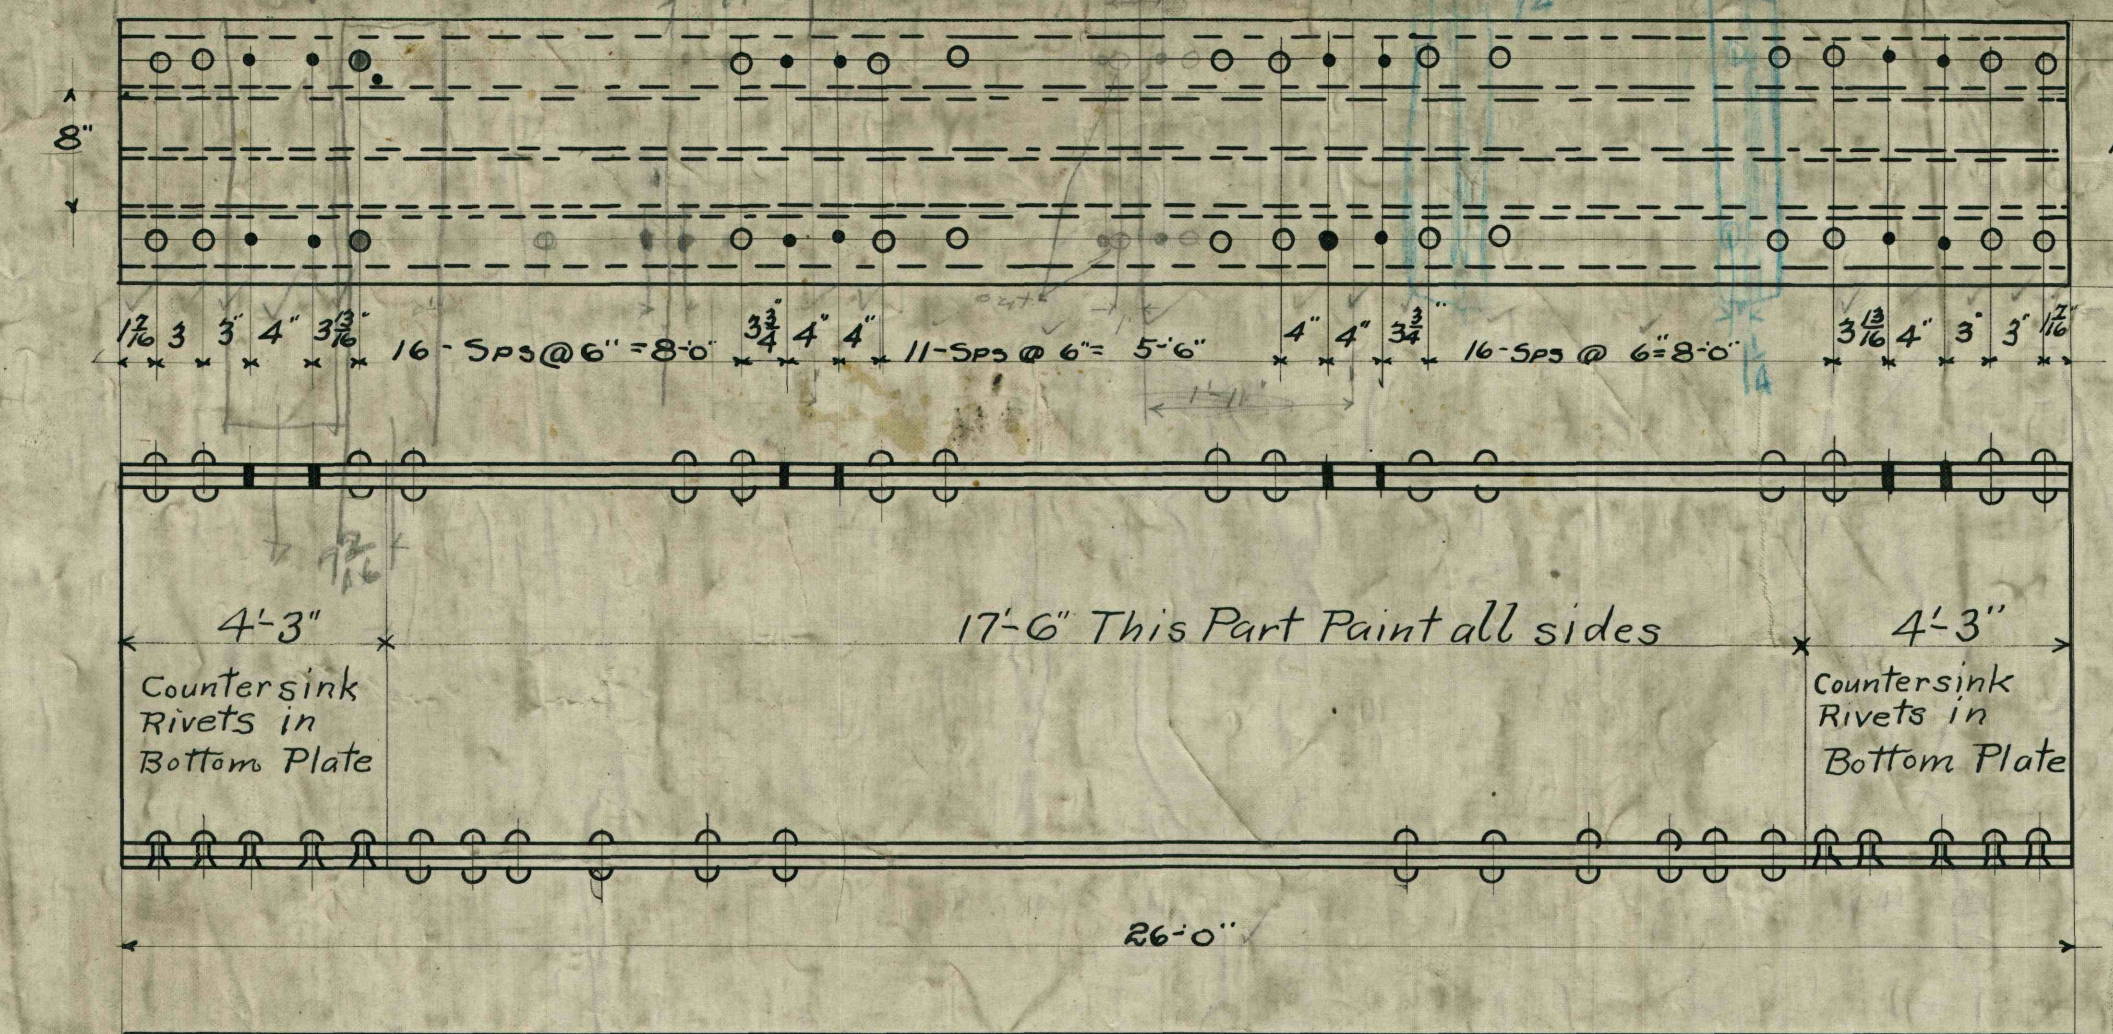 8"
1 7/16 3 3" 4" 3 13/16" 16 - Sps @ 6" = 8'-0" 3 3/4" 4" 4" 11-Sps @ 6" = 5'-6" 4" 4" 3 3/4" 16-Sps @ 6" = 8'-0" 3 13/16 4" 3" 3" 1 7/16"
1'-11"
4'-3" 17'-6" This Part Paint all sides 4'-3"
Countersink
Rivets in
Bottom Plate
Countersink
Rivets in
Bottom Plate
26'-0"